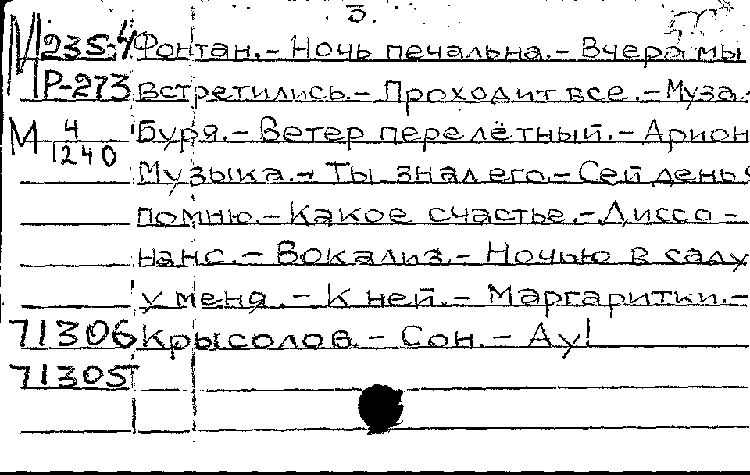 3.
М 235-4 Фонтан.- Ночь печальна.- Вчера мы
Р-273 встретились.- Проходит все.- Муза.-
М 4/1240 Буря.- Ветер перелётный.- Арион
Музыка.- Ты знал его.- Сей день я
помню.- Какое счастье.- Диссо-
нанс.- Вокализ.- Ночью в саду
у меня.- К ней.- Маргаритки.-
71306 Крысолов.- Сон.- Ау!
71305